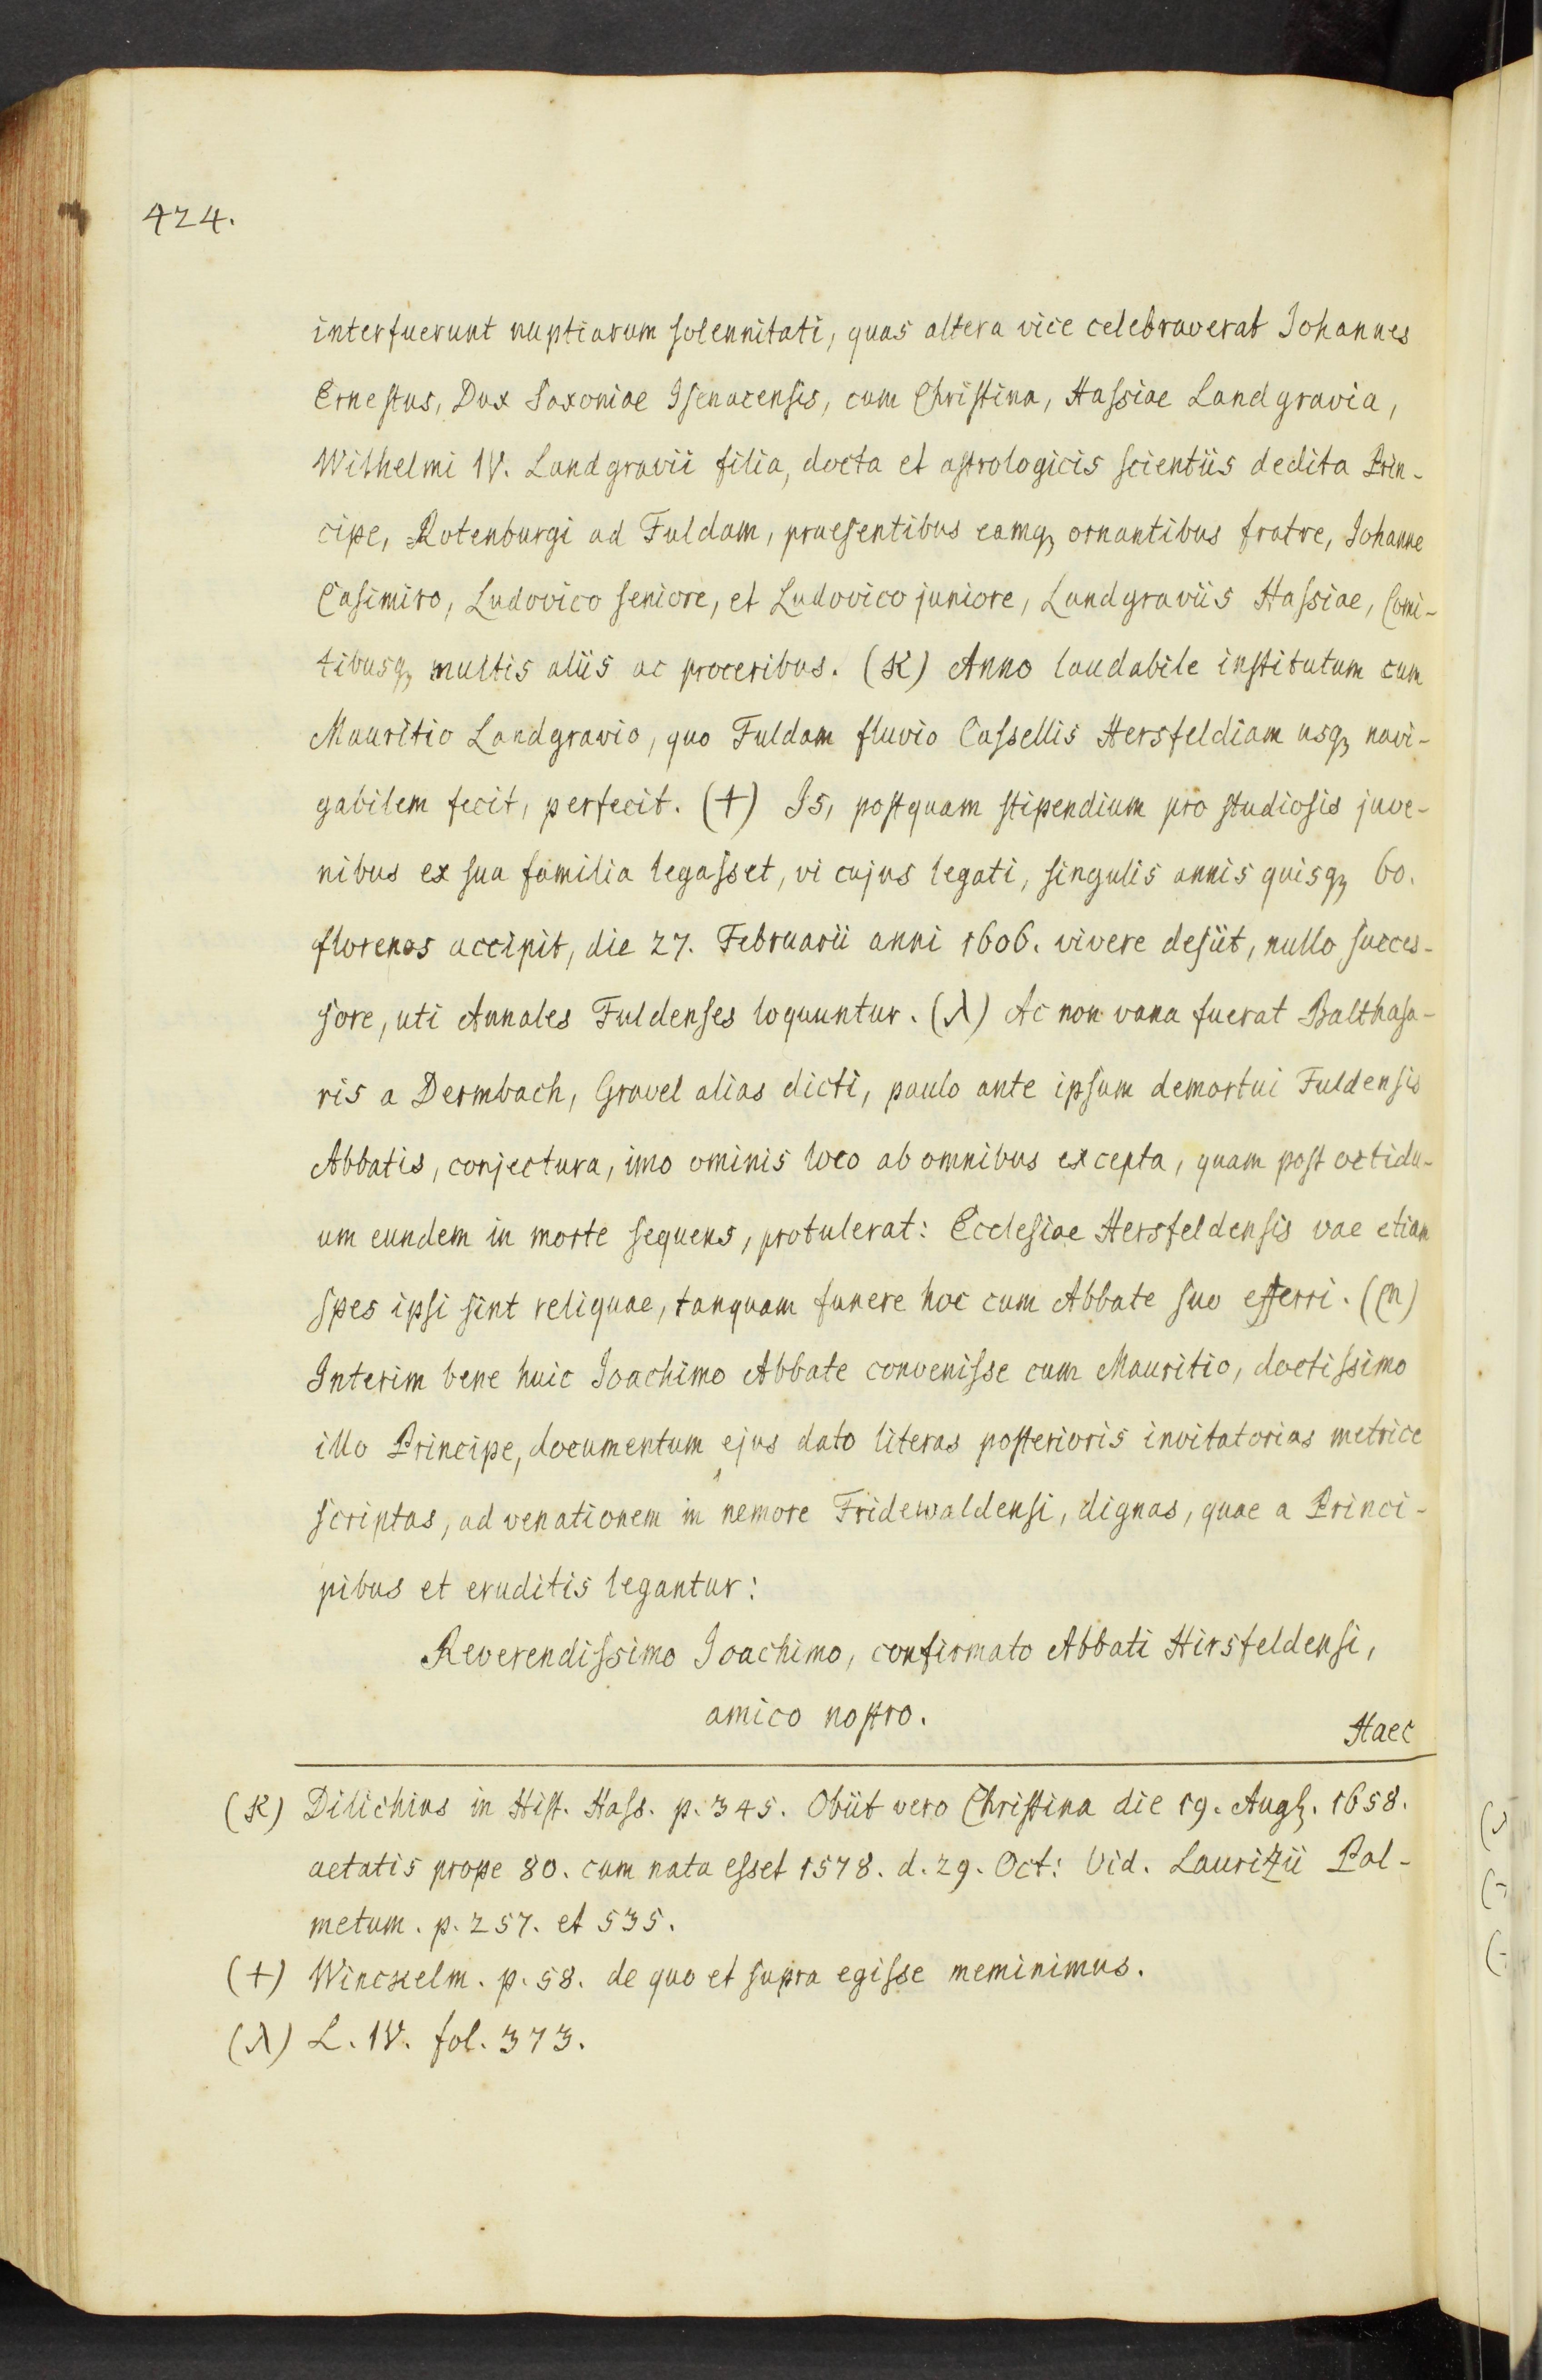 424.
interfuerunt nuptiarum solennitati, quas altera vice celebraverat Johannes
Ernestus, Dux Saxoniae Isenacensis, cum Christina, Hassiae Landgravia,
Wilhelmi IV. Landgravii filia, docta et astrologicis scientiis dedita Prin-
cipe, Rotenburgi ad Fuldam, praesentibus eamq, ornantibus fratre, Johanne
Casimiro, Ludovico seniore, et Ludovico juniore, Landgraviis Hassiae, Comi-
tibusq, multis aliis ac proceribus. (K) Anno laudabile institutum cum
Mauritio Landgravio, quo Fuldam fluvio Cassellis Hersfeldiam usq, navi-
gabilem fecit, perfecit. (+) Is, postquam stipendium pro studiosis juve-
nibus ex sua familia legasset, vi cujus legati, singulis annis quisq, 60.
florenos accipit, die 27. Februarii anni 1606. vivere desiit, nullo succes-
sore, uti Annales Fuldenses loquuntur. (λ) Ac non vana fuerat Balthasa-
ris a Dermbach, Gravel alias dicti, paulo ante ipsum demortui Fuldensis
Abbatis, conjectura, imo ominis loco ab omnibus excepta, quam post octidu-
um eundem in morte sequens, protulerat: Ecclesiae Hersfeldensis vae etiam
spes ipsi sint reliquae, tanquam funere hoc cum Abbate suo efferri. (m)
Interim bene huic Joachimo Abbate convenisse cum Mauritio, doctissimo
illo Principe, documentum ejus dato literas posterioris invitatorias metrice
scriptas, ad venationem in nemore Fridewaldensi, dignas, quae a Princi-
pibus et eruditis legantur:
Reverendissimo Joachimo, confirmato Abbati Hirsfeldensi,
amico nostro.
Haec
(K) Dilichius in Hist. Hass. p. 345. Obiit vero Christina die 19. Aug. 1658.
aetatis prope 80. cum nata esset 1578. d. 29. Oct: Vid. Lauritzii Pal-
metum. p. 257. et 535.
(+) Winckelm. p. 58. de quo et supra egisse meminimus.
(λ) L. IV. fol. 373.